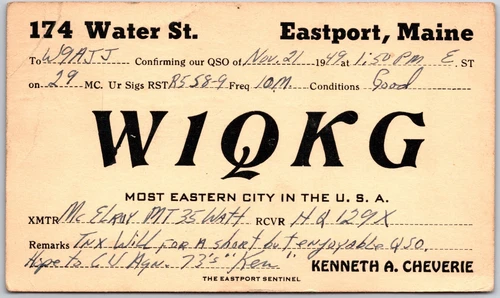 174 Water St. Eastport, Maine
To W9AJJ Confirming our QSO of Nov. 21 1949 at 1:50 PM E ST
on 29 MC. Ur Sigs RST R5 S8-9 Freq 10M. Conditions Good
W1QKG
MOST EASTERN CITY IN THE U. S. A.
XMTR Mc Elroy MT 35 Watt RCVR HQ 129X
Remarks Tnx Will for a short but enjoyable QSO.
Hope to C U Agn. 73's "Ken" KENNETH A. CHEVERIE
THE EASTPORT SENTINEL